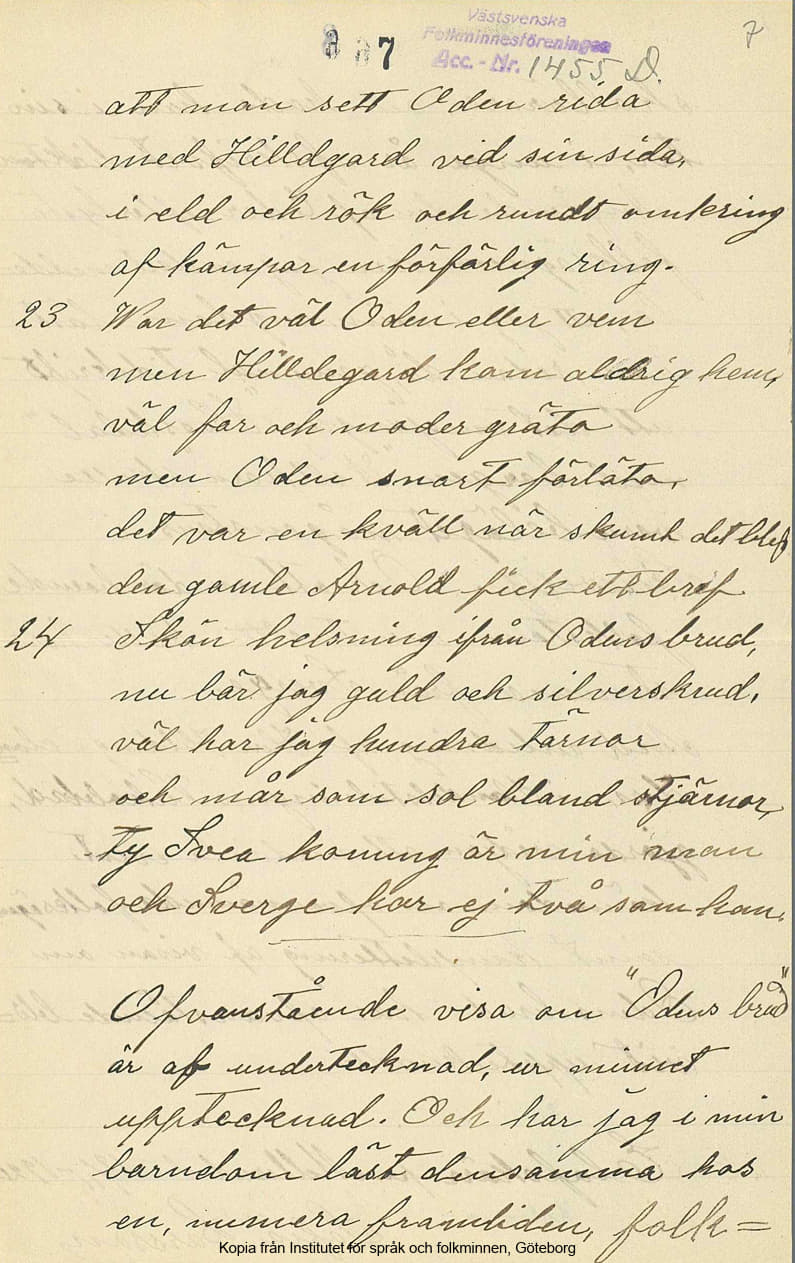 7
Västsvenska
Folkminnesföreningen
Acc. - Nr. 1455 D.
7
att man sett Oden rida
med Hilldgard vid sin sida,
i eld och rök och rundt omkring
af kämpar en förfärlig ring.
23 War det väl Oden eller vem
men Hilldegard kom aldrig hem,
väl far och moder gräto
men Oden snart förläto,
det var en kväll när skumt det blef
den gamle Arnold fick ett bref
24 Skön helsning ifrån Odens brud,
nu bär jag guld och silverskrud,
väl har jag hundra tärnor
och mår som sol bland stjärnor,
ty Svea konung är min man
och Sverge har ej två som han.
Ofvanstående visa om "Odens brud"
är af undertecknad, ur minnet
upptecknad. Och har jag i min
barndom läst densamma hos
en, numera framliden, folk=
Kopia från Institutet för språk och folkminnen, Göteborg